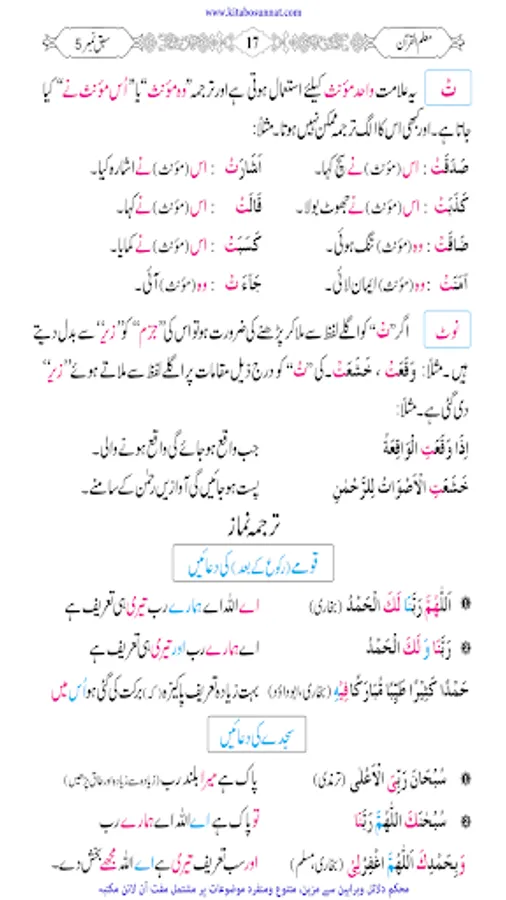 www.kitabosunnat.com
معلم القرآن 17 سبق نمبر 5
تْ یہ علامت واحد مؤنث کیلئے استعمال ہوتی ہے اور ترجمہ "وہ مؤنث" یا "اُس مؤنث نے" کیا
جاتا ہے۔ اور کبھی اس کا الگ ترجمہ ممکن نہیں ہوتا۔ مثلاً:
صَدَقَتْ : اس (مؤنث) نے سچ کہا۔ اَشَارَتْ : اس (مؤنث) نے اشارہ کیا۔
كَذَبَتْ : اس (مؤنث) نے جھوٹ بولا۔ قَالَتْ : اس (مؤنث) نے کہا۔
ضَاقَتْ : وہ (مؤنث) تنگ ہوئی۔ كَسَبَتْ : اس (مؤنث) نے کمایا۔
اٰمَنَتْ : وہ (مؤنث) ایمان لائی۔ جَآءَتْ : وہ (مؤنث) آئی۔
نوٹ اگر "تْ" کو اگلے لفظ سے ملا کر پڑھنے کی ضرورت ہو تو اس کی "جزم" کو "زیر" سے بدل دیتے
ہیں۔ مثلاً: وَقَعَتْ ، خَشَعَتْ۔ کی "تْ" کو درج ذیل مقامات پر اگلے لفظ سے ملاتے ہوئے "زیر"
دی گئی ہے۔ مثلاً:
اِذَا وَقَعَتِ الْوَاقِعَةُ جب واقع ہو جائے گی واقع ہونے والی۔
خَشَعَتِ الْاَصْوَاتُ لِلرَّحْمٰنِ پست ہو جائیں گی آوازیں رحمٰن کے سامنے۔
ترجمہ نماز
قومے (رکوع کے بعد) کی دعائیں
1 اَللّٰهُمَّ رَبَّنَا لَكَ الْحَمْدُ (بخاری) اے اللہ اے ہمارے رب تیری ہی تعریف ہے
2 رَبَّنَا وَلَكَ الْحَمْدُ اے ہمارے رب اور تیری ہی تعریف ہے
حَمْدًا كَثِيْرًا طَيِّبًا مُّبَارَكًا فِيْهِ (بخاری، ابوداؤد) بہت زیادہ تعریف پاکیزہ (کہ) برکت کی گئی ہو اُس میں
سجدے کی دعائیں
1 سُبْحَانَ رَبِّيَ الْاَعْلٰى (ترمذی) پاک ہے میرا بلند رب (زیادہ سے زیادہ اور طاق پڑھیں)
2 سُبْحٰنَكَ اللّٰهُمَّ رَبَّنَا تو پاک ہے اے اللہ اے ہمارے رب
وَبِحَمْدِكَ اَللّٰهُمَّ اغْفِرْلِيْ (بخاری، مسلم) اور سب تعریف تیری ہے اے اللہ مجھے بخش دے۔
محکم دلائل وبراہین سے مزین، متنوع ومنفرد موضوعات پر مشتمل مفت آن لائن مکتبہ